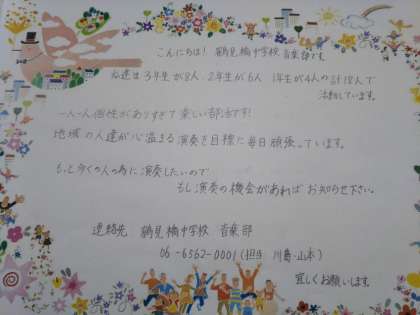 こんにちは！ 鶴見橋中学校 音楽部です。
私達は3年生が8人、2年生が6人 1年生が4人の計18人で
活動しています。
一人一人個性がありすぎて楽しい部活です!
地域の人達が心温まる演奏を目標に毎日頑張っています。
もっと多くの人の為に演奏したいので
もし演奏の機会があればお知らせ下さい。
連絡先 鶴見橋中学校 音楽部
06-6562-0001(担当 川島・山本)
宜しくお願いします。